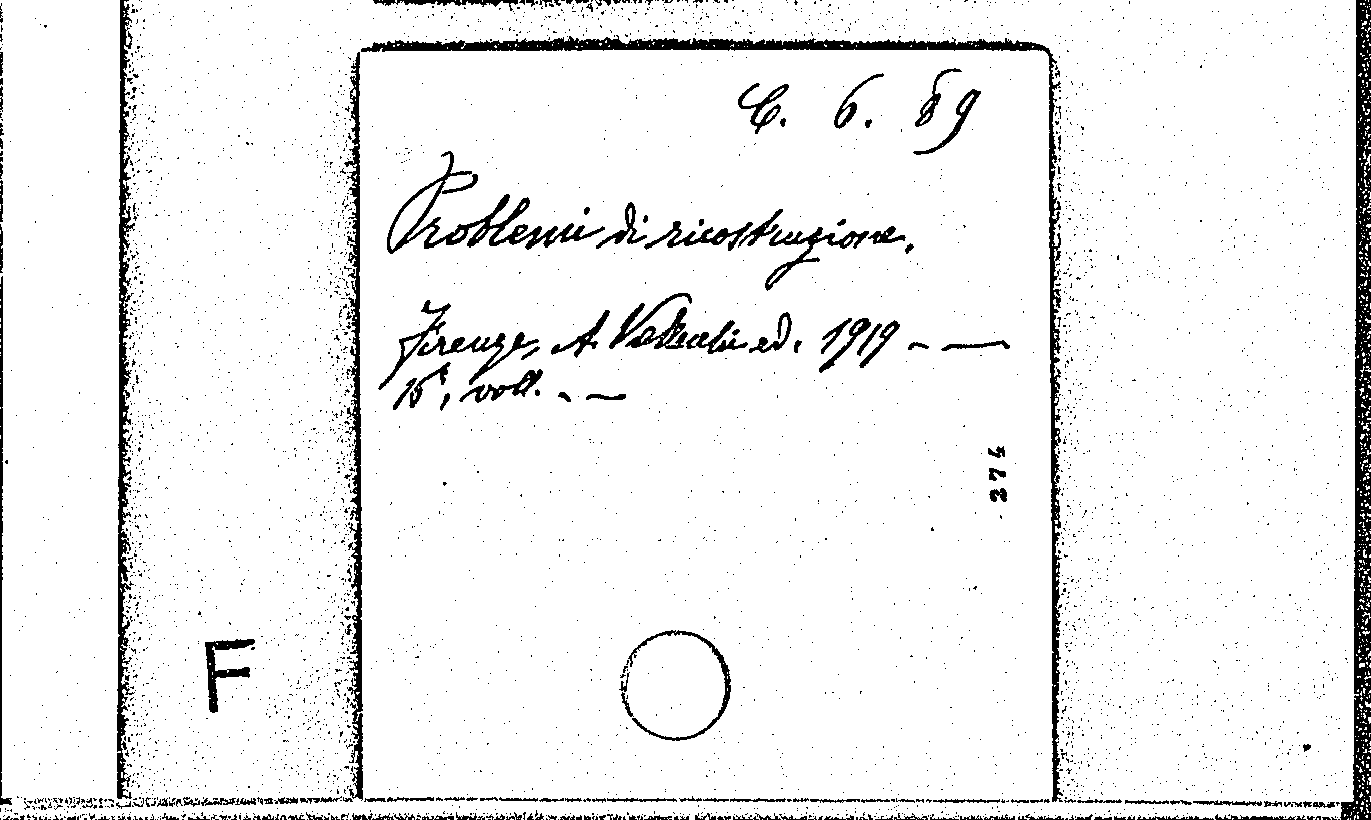 C. 6. 89
Problemi di ricostruzione.
Firenze, A. Vallecchi ed. 1919 - —
16°, voll. - —
274
F